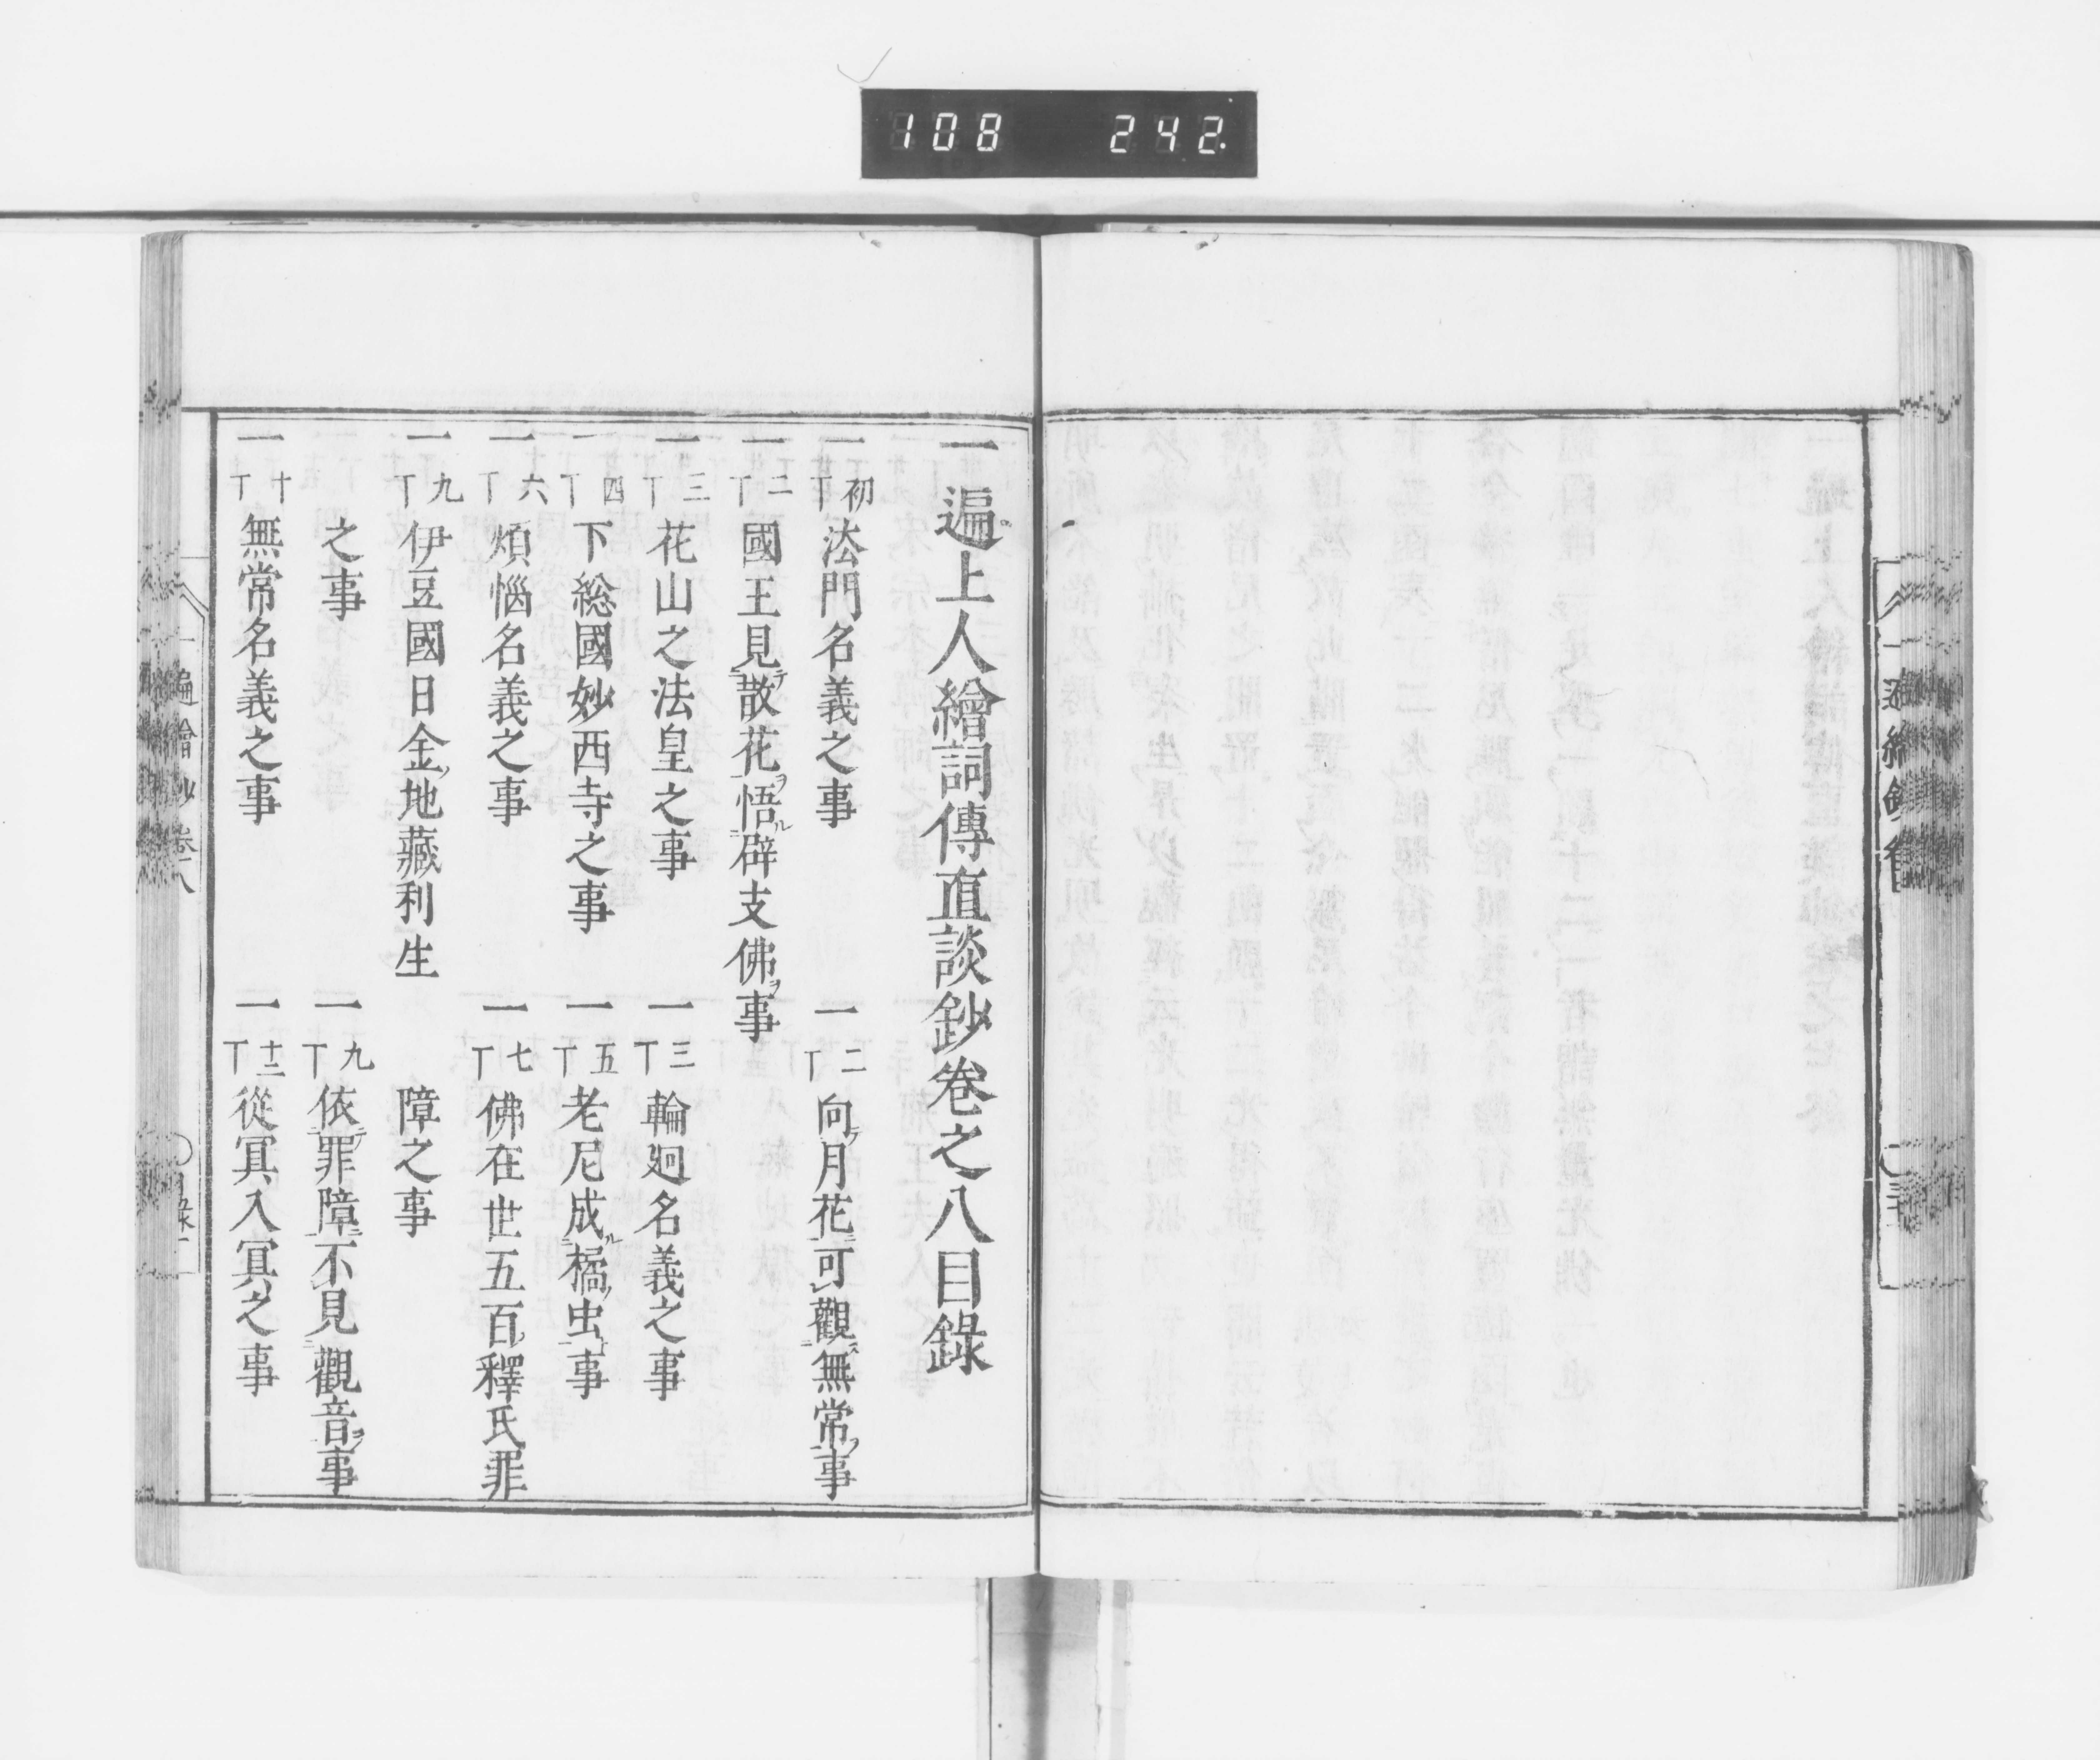 108 242
一遍上人繪詞傳直談鈔卷之八目錄
一初丁法門名義之事 一二丁向テ月花ニ可シ觀ス無常ヲ事
一二丁國王見テ散花ヲ悟ル辟支佛ヲ事
一三丁花山之法皇之事 一三丁輪廻名義之事
一四丁下総國妙西寺之事 一五丁老尼成ル橘ノ虫ト事
一六丁煩惱名義之事 一七丁佛在世五百ノ釋氏罪
障之事
一九丁伊豆國日金ノ地藏利生
之事 一九丁依テ罪障ニ不見觀音ヲ事
一十丁無常名義之事 一十二丁從冥入冥之事
一遍繪鈔卷八 目錄 一